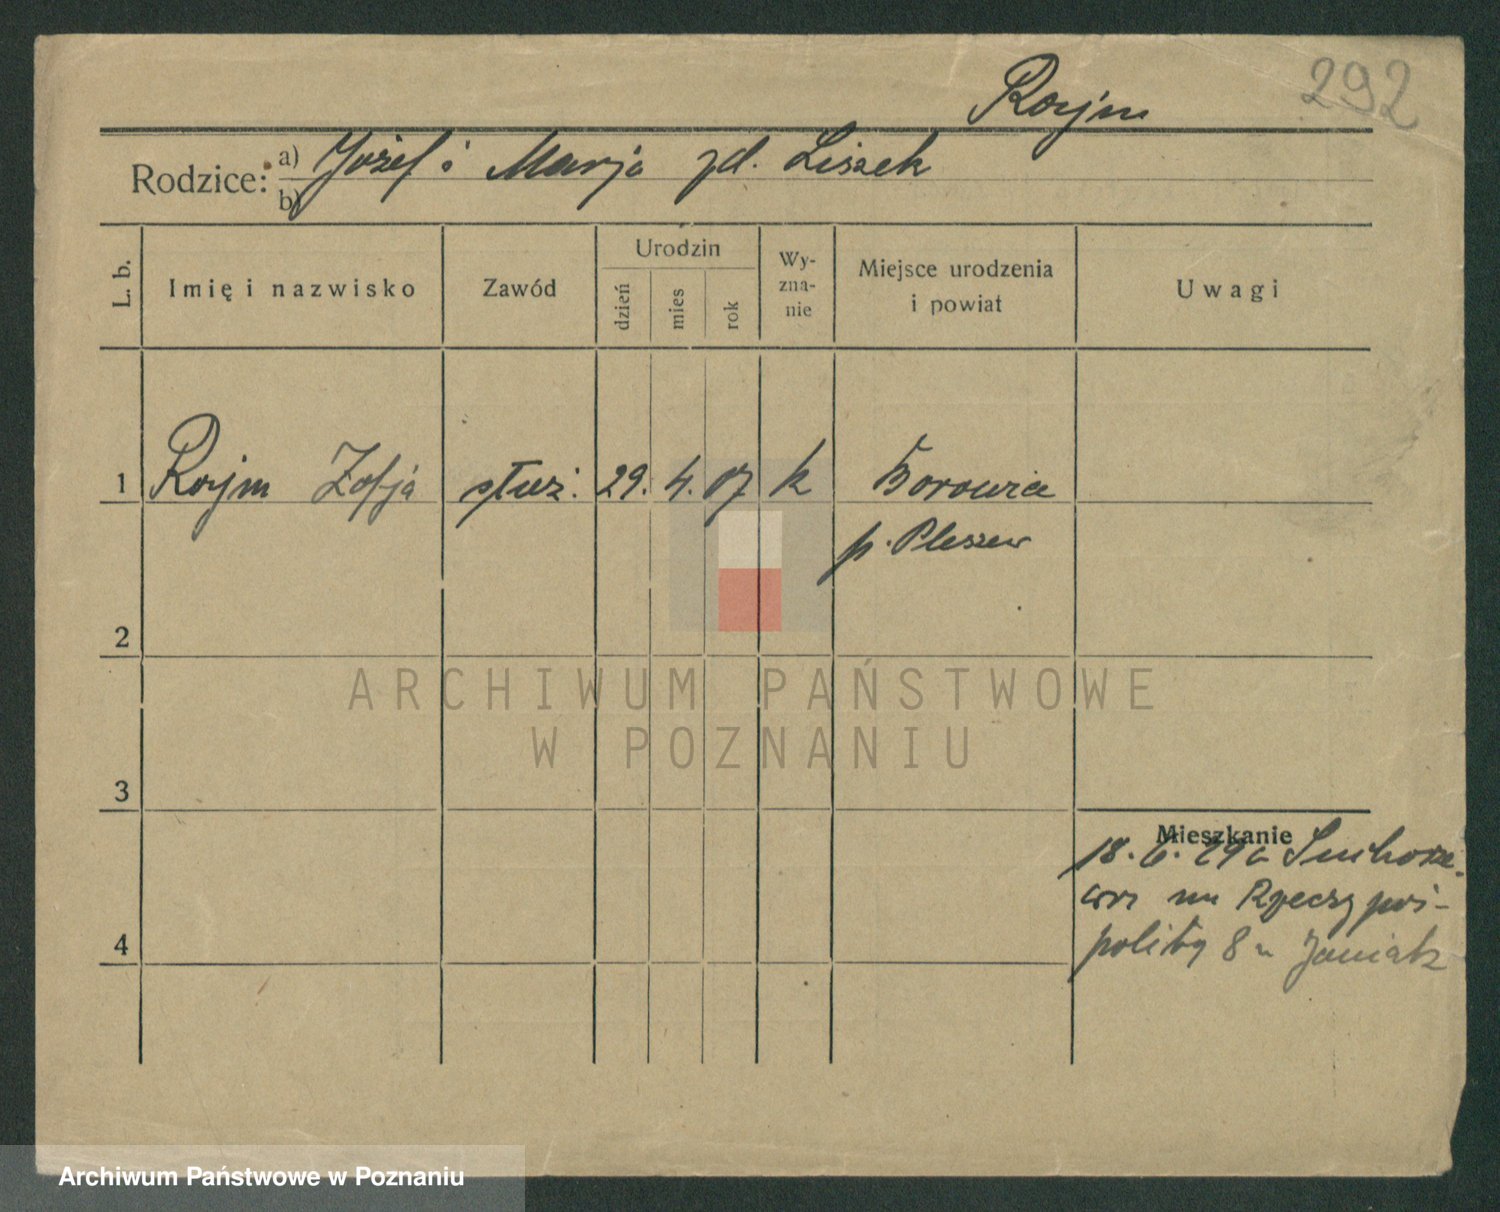 292
Rorjm
Rodzice: a) Józef i Marja zd. Liszek
b)
L. b.
Imię i nazwisko
Zawód
Urodzin
dzień
mies
rok
Wy-
zna-
nie
Miejsce urodzenia
i powiat
Uwagi
1 Rorjm Zofja służ. 29. 4. 07 k
p. Pleszew
2
ARCHIWUM PAŃSTWOWE
W POZNANIU
3
Mieszkanie
18. 6. 29
4
8 Janiak
Archiwum Państwowe w Poznaniu